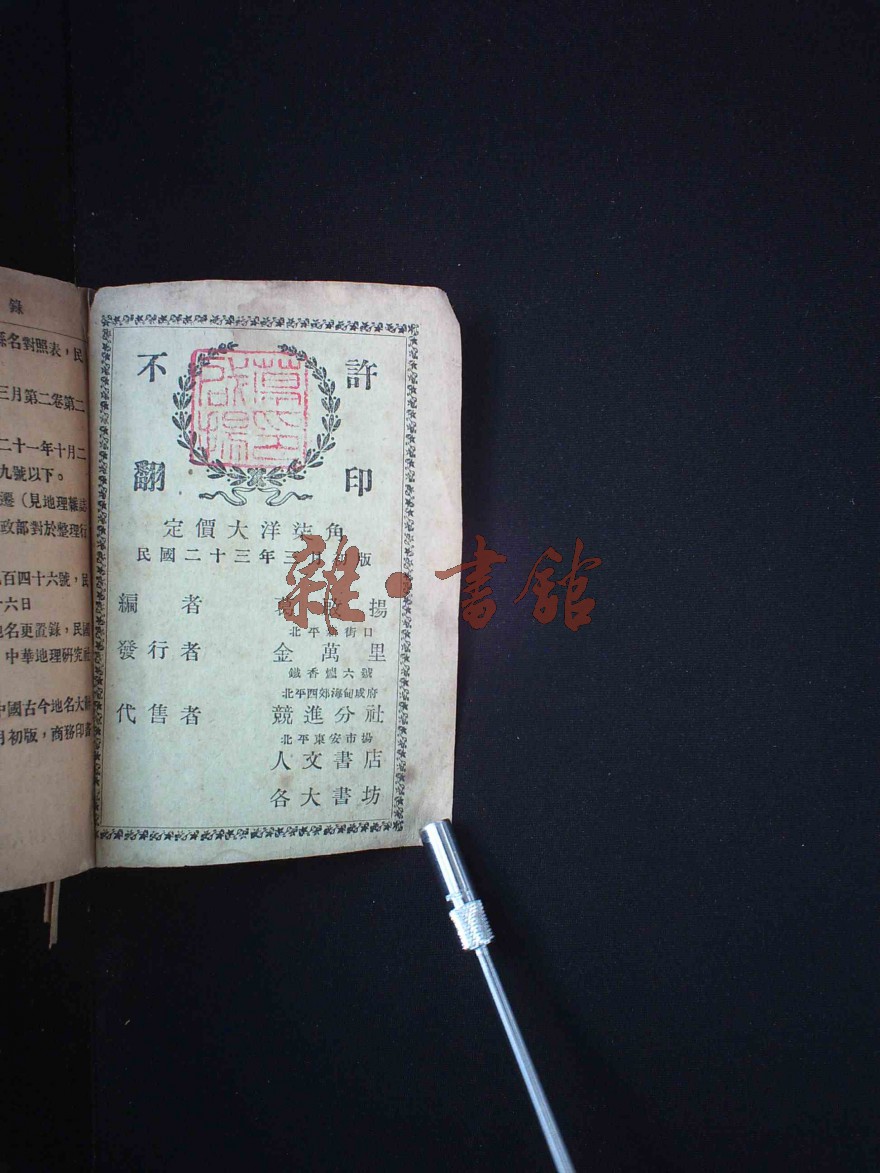 錄
縣名對照表，民
三月第二卷第二
二十一年十月二
九號以下。
遷（見地理雜誌
政部對於整理行
百四十六號，民
十六日
地名更置錄，民國
中華地理研究社
中國古今地名大
月初版，商務印
不許
翻印
葛啟揚印
定價大洋柒角
民國二十三年三月初版
編者 葛啟揚
北平 街口
發行者 金萬里
鐵香爐六號
北平西郊海甸成府
代售者 競進分社
北平東安市場
人文書店
各大書坊
雜·書館